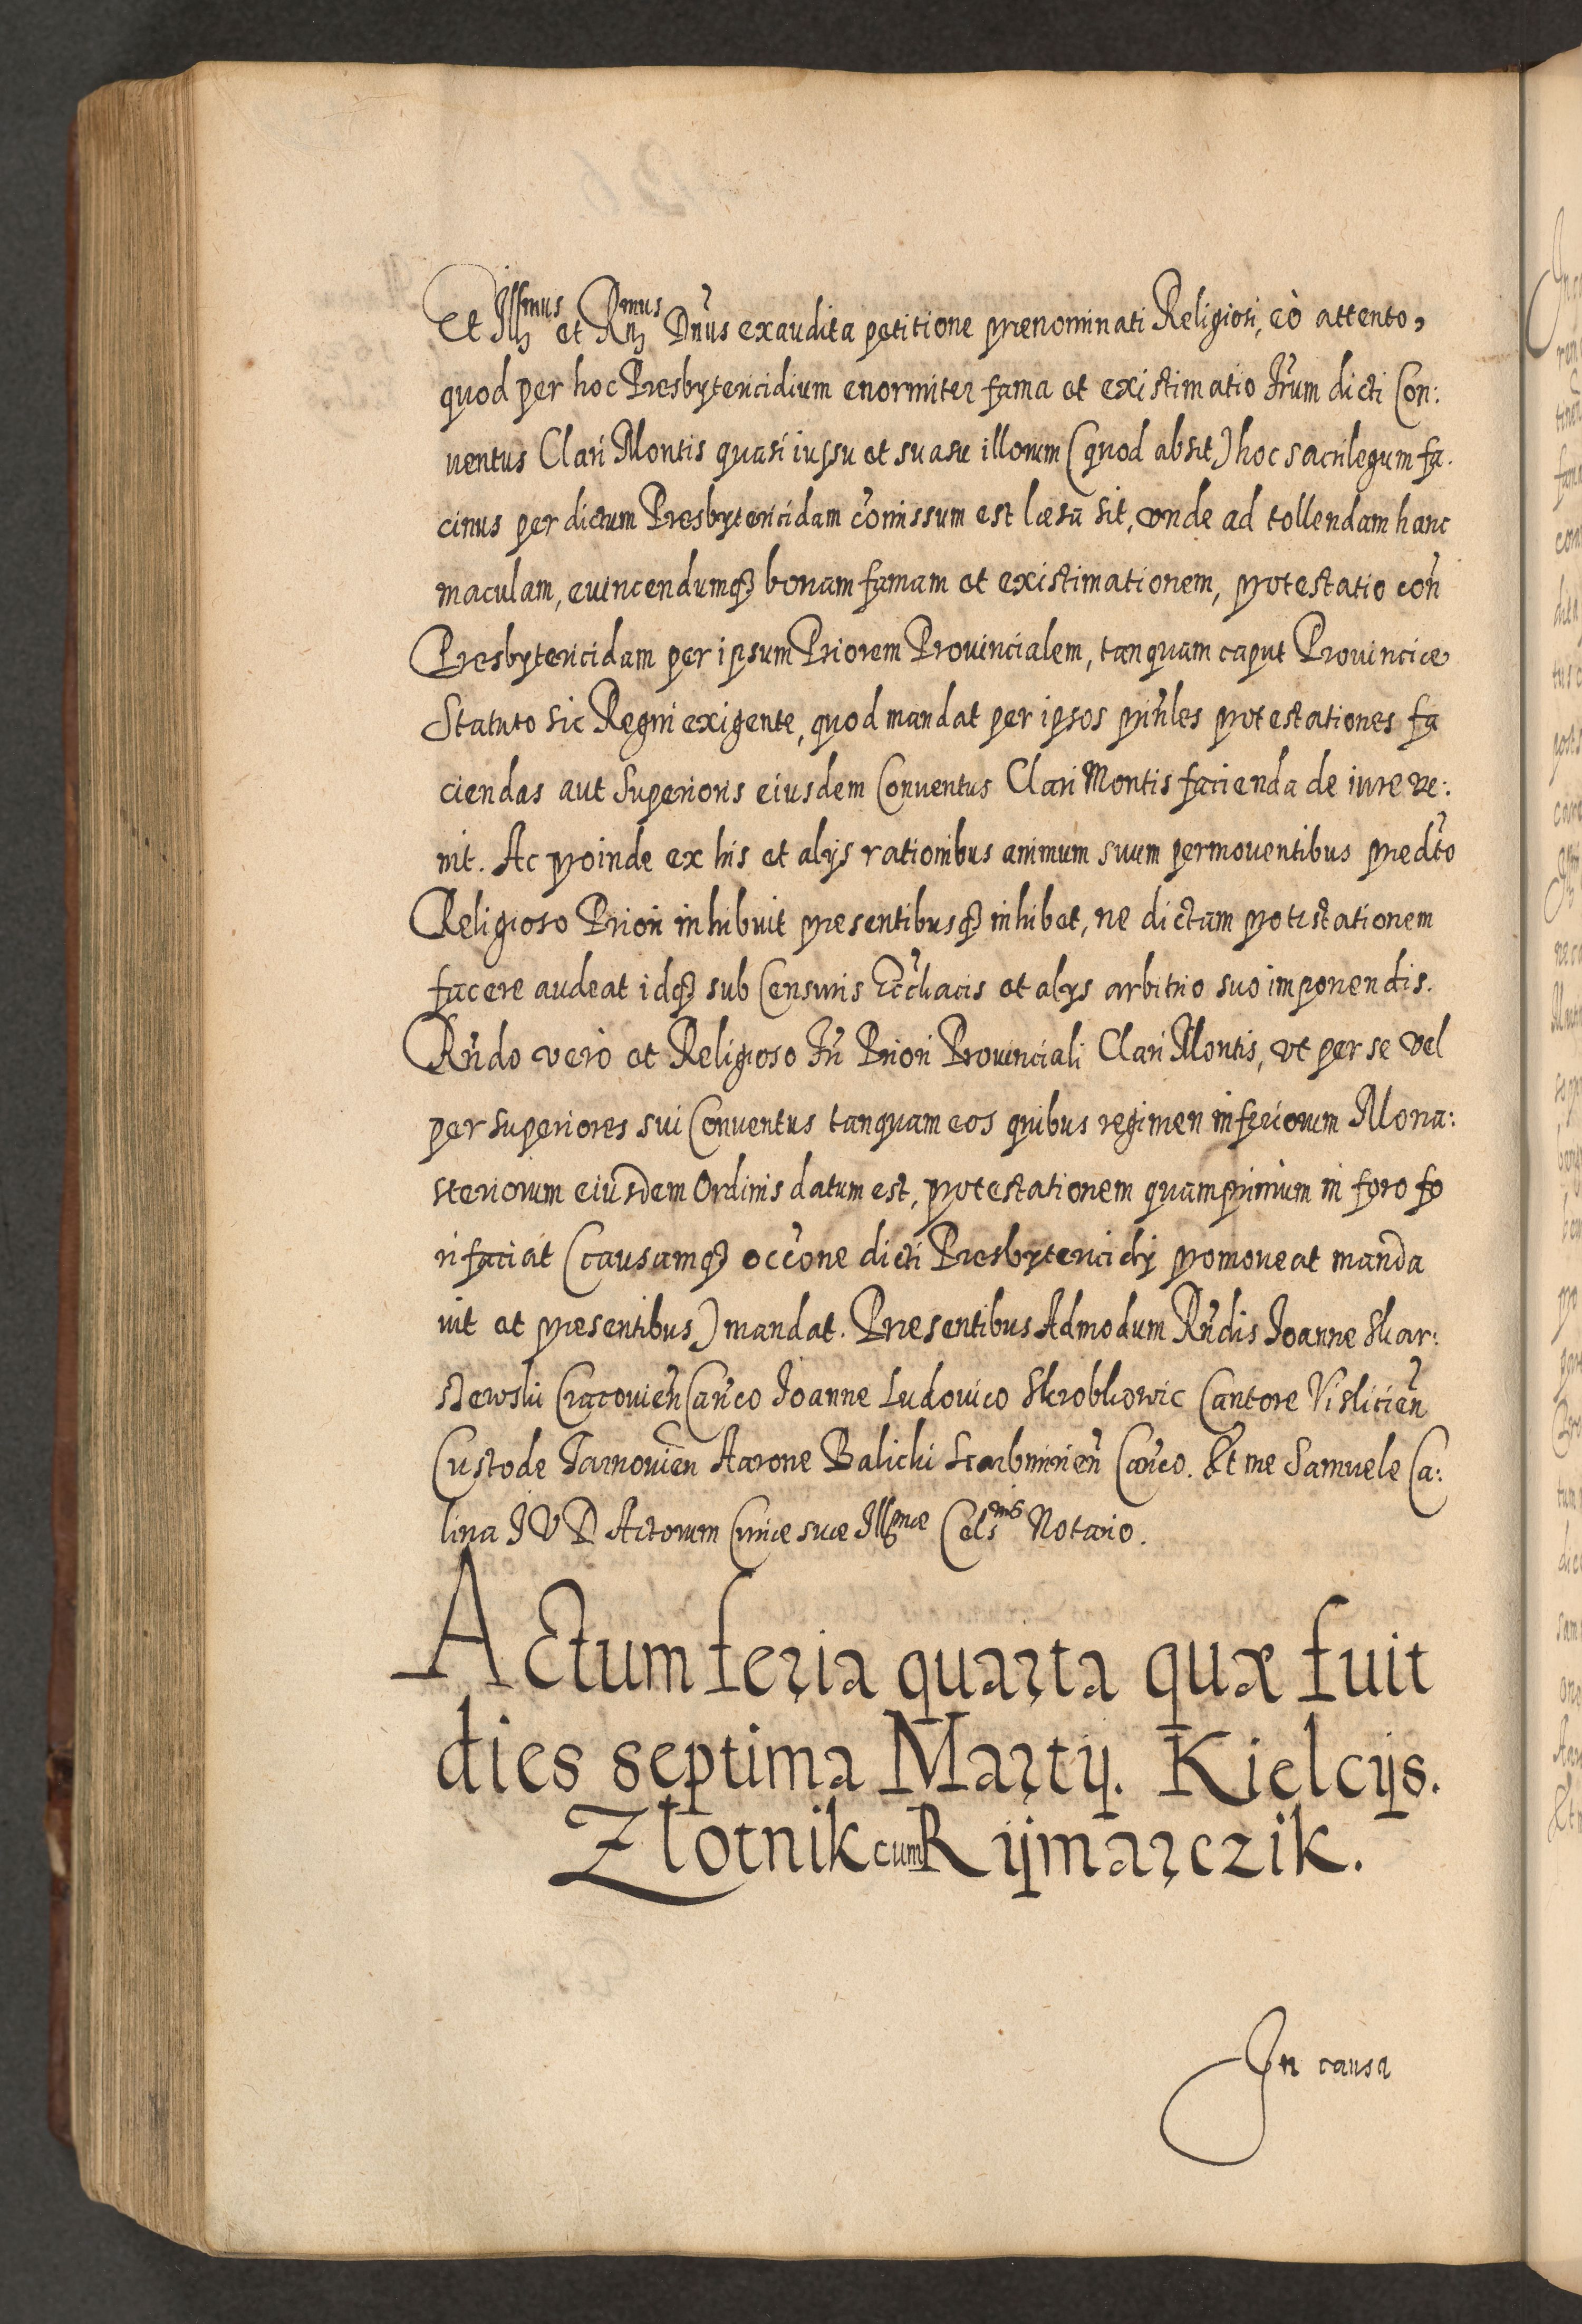 Et Illmus et Rmus Dnus exaudita petitione prenominati Religiosi, eò attento,
quod per hoc Presbytericidium enormiter fama et existimatio Frum dicti Con:
uentus Clari Montis quasi iussu et suasu illorum (quod absit) hoc sacrilegum fa.
cinus per dictum Presbytericidam comissum est læsa sit, vnde ad tollendam hanc
maculam, euincendumq3 bonam famam et existimationem, protestatio con
Presbytericidam per ipsum Priorem Prouincialem, tanquam caput Prouinciæ
Statuto sic Regni exigente, quod mandat per ipsos prinles protestationes fa
ciendas aut Superioris eiusdem Conuentus Clari Montis facienda de iure ve:
nit. Ac proinde ex his et alys rationibus animum suum permouentibus predto
Religioso Priori inhibuit presentibusq3 inhibet, ne dictam protestationem
facere audeat idq3 sub Censuris Ecchacis et alys arbitrio suo imponendis.
Rndo verò et Religioso Fri Priori Prouinciali Clari Montis, vt per se vel
per Superiores sui Conuentus tanquam eos quibus regimen inferiorum Mona:
steriorum eiusdem Ordinis datum est, protestationem quamprimum in foro fo
ri faciat (causamq3 occone dicti Presbytericidy promoueat manda
uit et presentibus) mandat. Presentibus Admodum Rndis Ioanne Skar:
szewski Cracouien Canco Ioanne Ludouico Skrobkowic Cantore Vislicien
Custode Tarnouien Aarone Balicki Scarbimirien Canco. Et me Samuele Ca:
lina I V D Actorum Curiæ suæ Illmæ Celsnis Notario.
Actum feria quarta quæ fuit
dies septima Martij. Kielcijs.
Złotnik cum Rijmarczik.
In causa